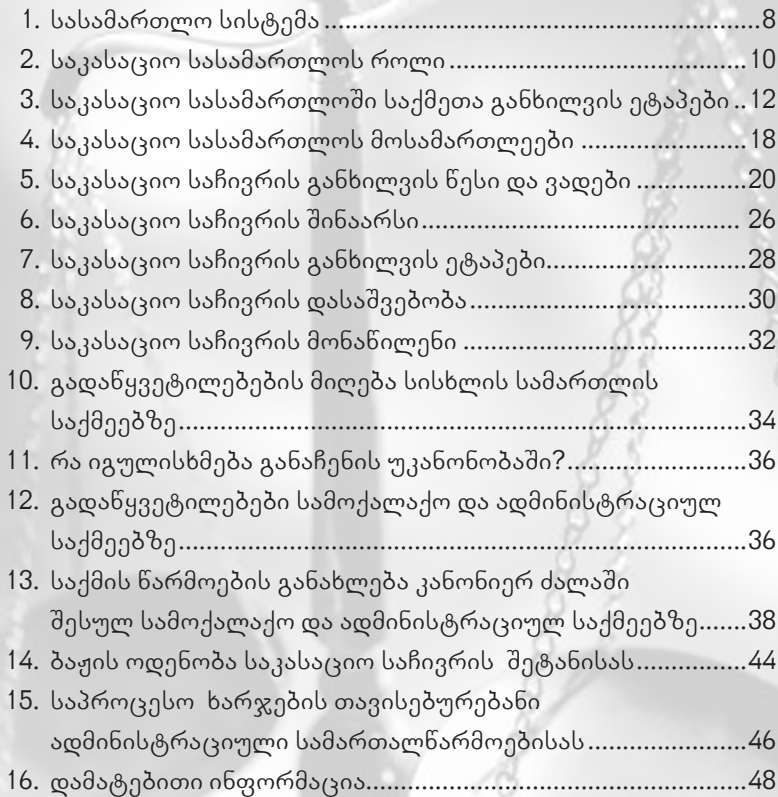 1. სასამართლო სისტემა ........................................................8
2. საკასაციო სასამართლოს როლი .........................................10
3. საკასაციო სასამართლოში საქმეთა განხილვის ეტაპები ..12
4. საკასაციო სასამართლოს მოსამართლეები .........................18
5. საკასაციო საჩივრის განხილვის წესი და ვადები .................20
6. საკასაციო საჩივრის შინაარსი............................................ 26
7. საკასაციო საჩივრის განხილვის ეტაპები.............................28
8. საკასაციო საჩივრის დასაშვებობა.......................................30
9. საკასაციო საჩივრის მონაწილენი ........................................32
10. გადაწყვეტილებების მიღება სისხლის სამართლის
საქმეებზე............................................................................34
11. რა იგულისხმება განაჩენის უკანონობაში?..........................36
12. გადაწყვეტილებები სამოქალაქო და ადმინისტრაციულ
საქმეებზე............................................................................36
13. საქმის წარმოების განახლება კანონიერ ძალაში
შესულ სამოქალაქო და ადმინისტრაციულ საქმეებზე.......38
14. ბაჟის ოდენობა საკასაციო საჩივრის შეტანისას..................44
15. საპროცესო ხარჯების თავისებურებანი
ადმინისტრაციული სამართალწარმოებისას........................46
16. დამატებითი ინფორმაცია.....................................................48